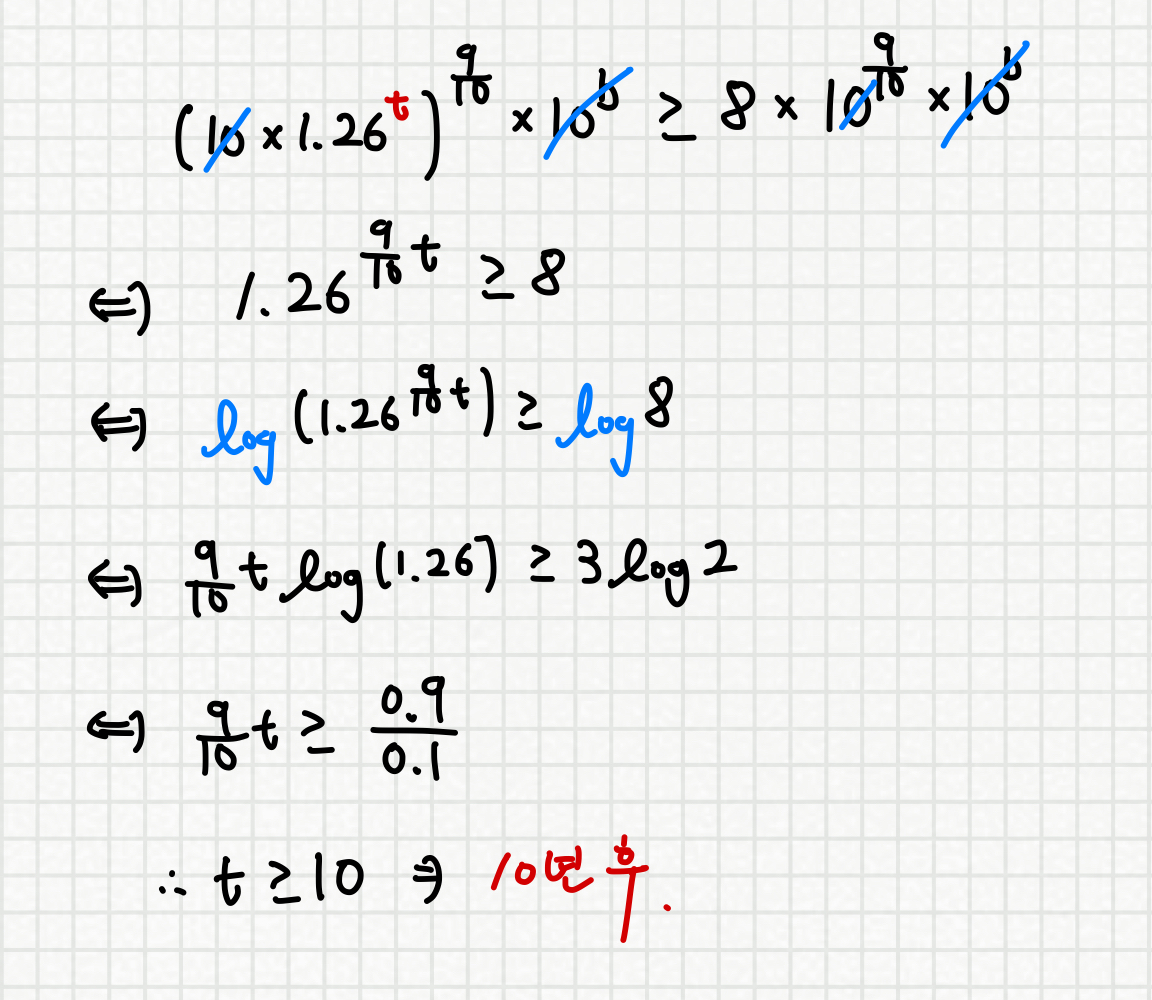 (10 × 1.26^t)^(9/10) × 10^b ≥ 8 × 10^(9/10) × 10^b
⇔ 1.26^(9/10 t) ≥ 8
⇔ log (1.26^(9/10 t)) ≥ log 8
⇔ 9/10 t log(1.26) ≥ 3 log 2
⇔ 9/10 t ≥ 0.9/0.1
∴ t ≥ 10 ⇒ 10년 후.